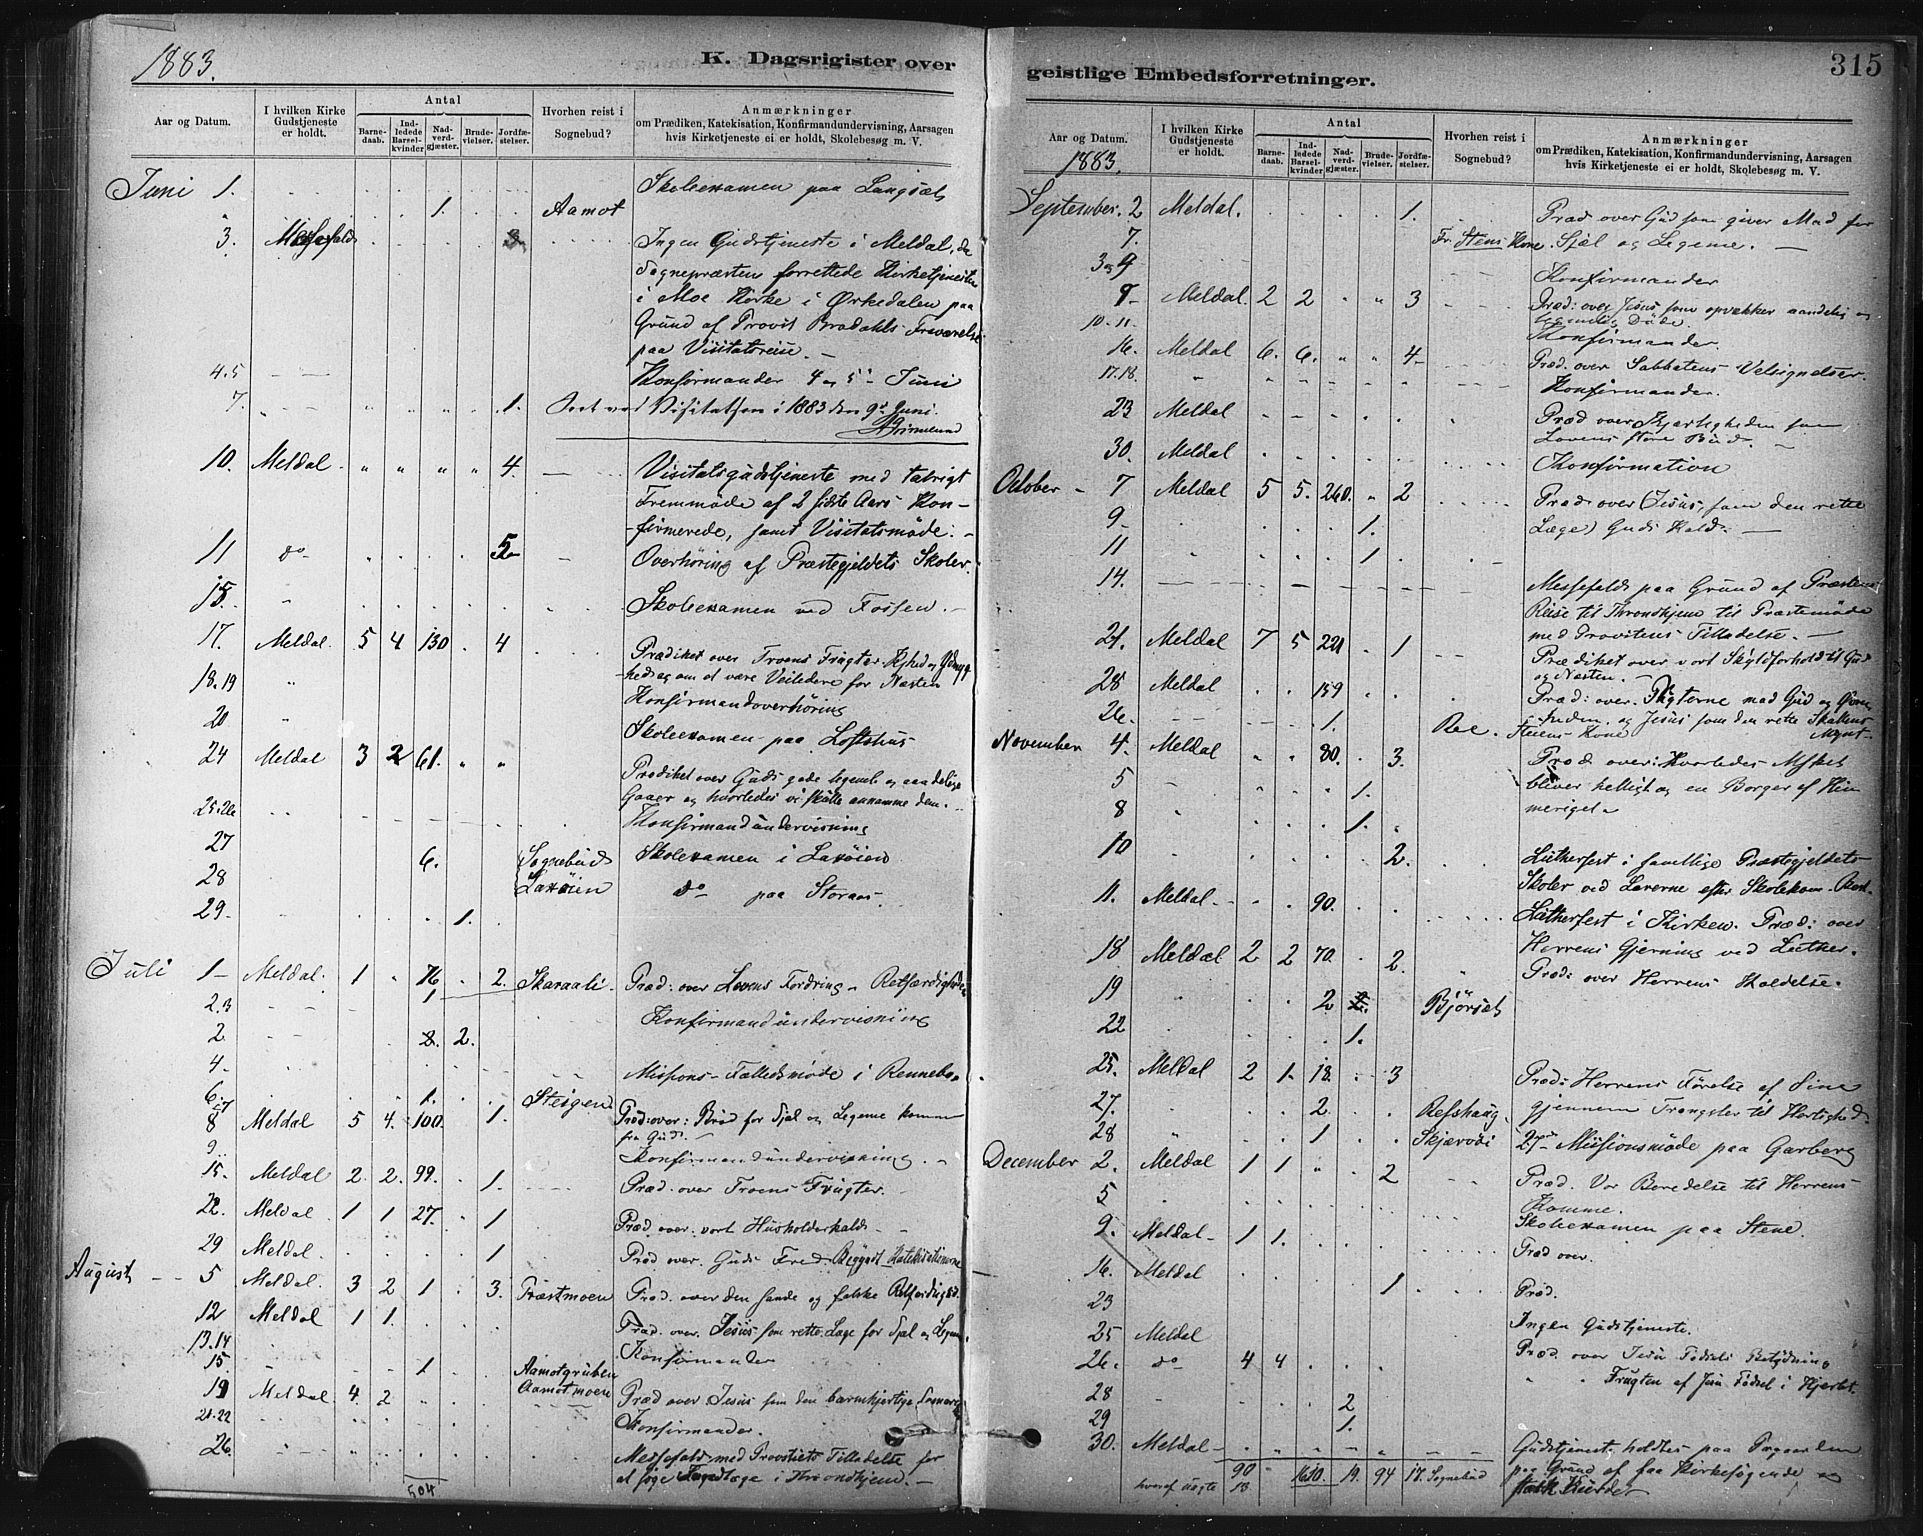 1883.
K. Dagsrigister over
Aar og Datum.
I hvilken Kirke Gudstjeneste er holdt.
Antal
Barne-daab.
Ind-ledede Barsel-kvinder
Nad-verd-gjæster.
Brude-vielser.
Jordfæ-stelser.
Hvorhen reist i Sognebud?
Anmærkninger
om Prædiken, Katekisation, Konfirmandundervisning, Aarsagen
hvis Kirketjeneste ei er holdt, Skolebesøg m. V.
Juni 1. Skoleexamen paa Langsæt
1. Aamot
3. Messefald Ingen Gudstjeneste i Meldal, da
Sognepræsten forrettede Kirketjenesten
i Moe Kirke i Ørkedalen paa
Grund af Provst Brodahls Fraværelse
paa Visitatsreise. -
4.5 Konfirmander 4 og 5 Juni
7. 1. Seet ved Visitatsen i 1883 den 9de Juni.
Grimelund
10. Meldal 4. Visitatsgudstjeneste med talrigt
Fremmøde af 2 sidste Aars Kon-
firmerede, samt Visitatsmøde. -
11 do 5 Overhøring af Præstegjeldets Skoler.
15. Skoleexamen ved Fossen. -
17. Meldal. 5 4 130 4 Prædiket over Troens Frugter
hed og om at være Veiledere for Næsten
18.19 Konfirmandoverhøring
20 Skoleexamen paa Loftshus
24 Meldal 3 2 61. Prædiket over Guds gode legemlige og aandelige
Gaver og hvorledes vi skulle annamme dem. -
25.26 Konfirmandundervisning
27 6. Sognebud Skolexamen i Laxøien
28 Laxøien do paa Storaas.
29 1.
Juli 1 Meldal. 1 76 2. Skaraali. Præd: over Lovens Fordring - Retfærdigheden
1
2.3 Konfirmandundervisning
2. 2. 2.
4. Missions-Fællesmøde i Rennebu
6.7 1. Steigen
8 Meldal 5 4. 100. 1. Præd: over: Brød for Sjæl og Legeme kommer
fra Gud. -
9. Konfirmandundervisning. -
15. Meldal 2. 2. 99. 1. Præd. over Troens Frugter.
22. Meldal 1 1 27. 1 Præd. over: vort Husholderkald -
29 Meldal. 1 Præd over. Guds Fred.
August 5 Meldal. 3 2 1 3. Præstmoen Præd. over den sande og falske Retfærdighed.
12 Meldal 1 1. Præd. over. Jesus som rette Læge for Sjæl og Legeme.
13.14 Konfirmander
15 1 Aamotgruben
19 Meldal 4. 2 Aamotmoen Præd over Jesus som den barmhjertige
21.22 Konfirmander.
26. Messefald med Provstiets Tilladelse for
at søge Læge i Throndhjem. -
504
geistlige Embedsforretninger.
315
Aar og Datum.
1883.
I hvilken Kirke Gudstjeneste er holdt.
Antal
Barne-daab.
Ind-ledede Barsel-kvinder
Nad-verd-gjæster.
Brude-vielser.
Jordfæ-stelser.
Hvorhen reist i Sognebud?
Anmærkninger
om Prædiken, Katekisation, Konfirmandundervisning, Aarsagen
hvis Kirketjeneste ei er holdt, Skolebesøg m. V.
September. 2 Meldal. 1. Præd over Gud som giver Mad for
7. Fr. Stens Kone. Sjæl og Legeme. -
3 og 4 Konfirmander
9 Meldal 2 2 3 Præd: over Jesus som opvækker aandelig og
legemlig Døde.
10.11 Konfirmander.
16. Meldal 6. 6. 4 Præd. over Sabbatens Velsignelser.
17.18. Konfirmander.
23 Meldal Præd over Kjærligheden som
Lovens store Bud. -
30. Meldal Konfirmation
October 7 Meldal 5 5. 260. 2 Præd over (Jesus, som den rette
9 1. Læge) Guds Kald. -
11 1
14. Messefald paa Grund af Præstens
Reise til Throndhjem til Præstemøde
med Provstens Tilladelse. -
21. Meldal 7 5 221 1 Prædiket over vort Skyldforhold til Gud
og Næsten. -
28 Meldal 159 Præd: over. Pligterne mod Gud og Øvrig-
26. 1. Ree. heden. og Jesus som den rette Skattens
Steiens Kone Mynt.
November 4. Meldal 80. 3. Præd over: Hvorledes
5 1. bliver helligt og en Borger af Him
8 1. meriget.
10 2. Lutherfest i samtlige Præstegjeldets
Skoler ved Lærerne efter Skolekom.
11. Meldal 90. Lutherfest i Kirken. Præd: over
Herrens Gjerning ved Luther.
18 Meldal 2 2 70. 2. Præd: over Herrens Kaldelse.
19 2 Bjørset
22 1.
25. Meldal 2 1. 18. 3 Præd: Herrens Førelse af Sine
27. 2. Refshaug. gjennem Trængsler til Herlighed.
28 1 Skjærvøi 27de Missionsmøde paa Garberg
December 2. Meldal 1 1 2 Præd. Vor Beredelse til Herrens
Komme.
5 Skoleexamen paa Stene.
9. Meldal 1 1. Præd over.
16. Meldal 1 Præd.
23 Ingen Gudstjeneste.
25 Meldal Præd. over Jesu Fødsels Betydning
26. do 4 4 Frugten af Jesu Fødsel i Hjertet.
28 2
29 1.
30. Meldal Gudstjenest. holdtes paa Præstegaarden
90 1610. 19. 94 17. Sognebud paa Grund af faa Kirkesøgende og
hvoraf uægte 13. stærk Kulde